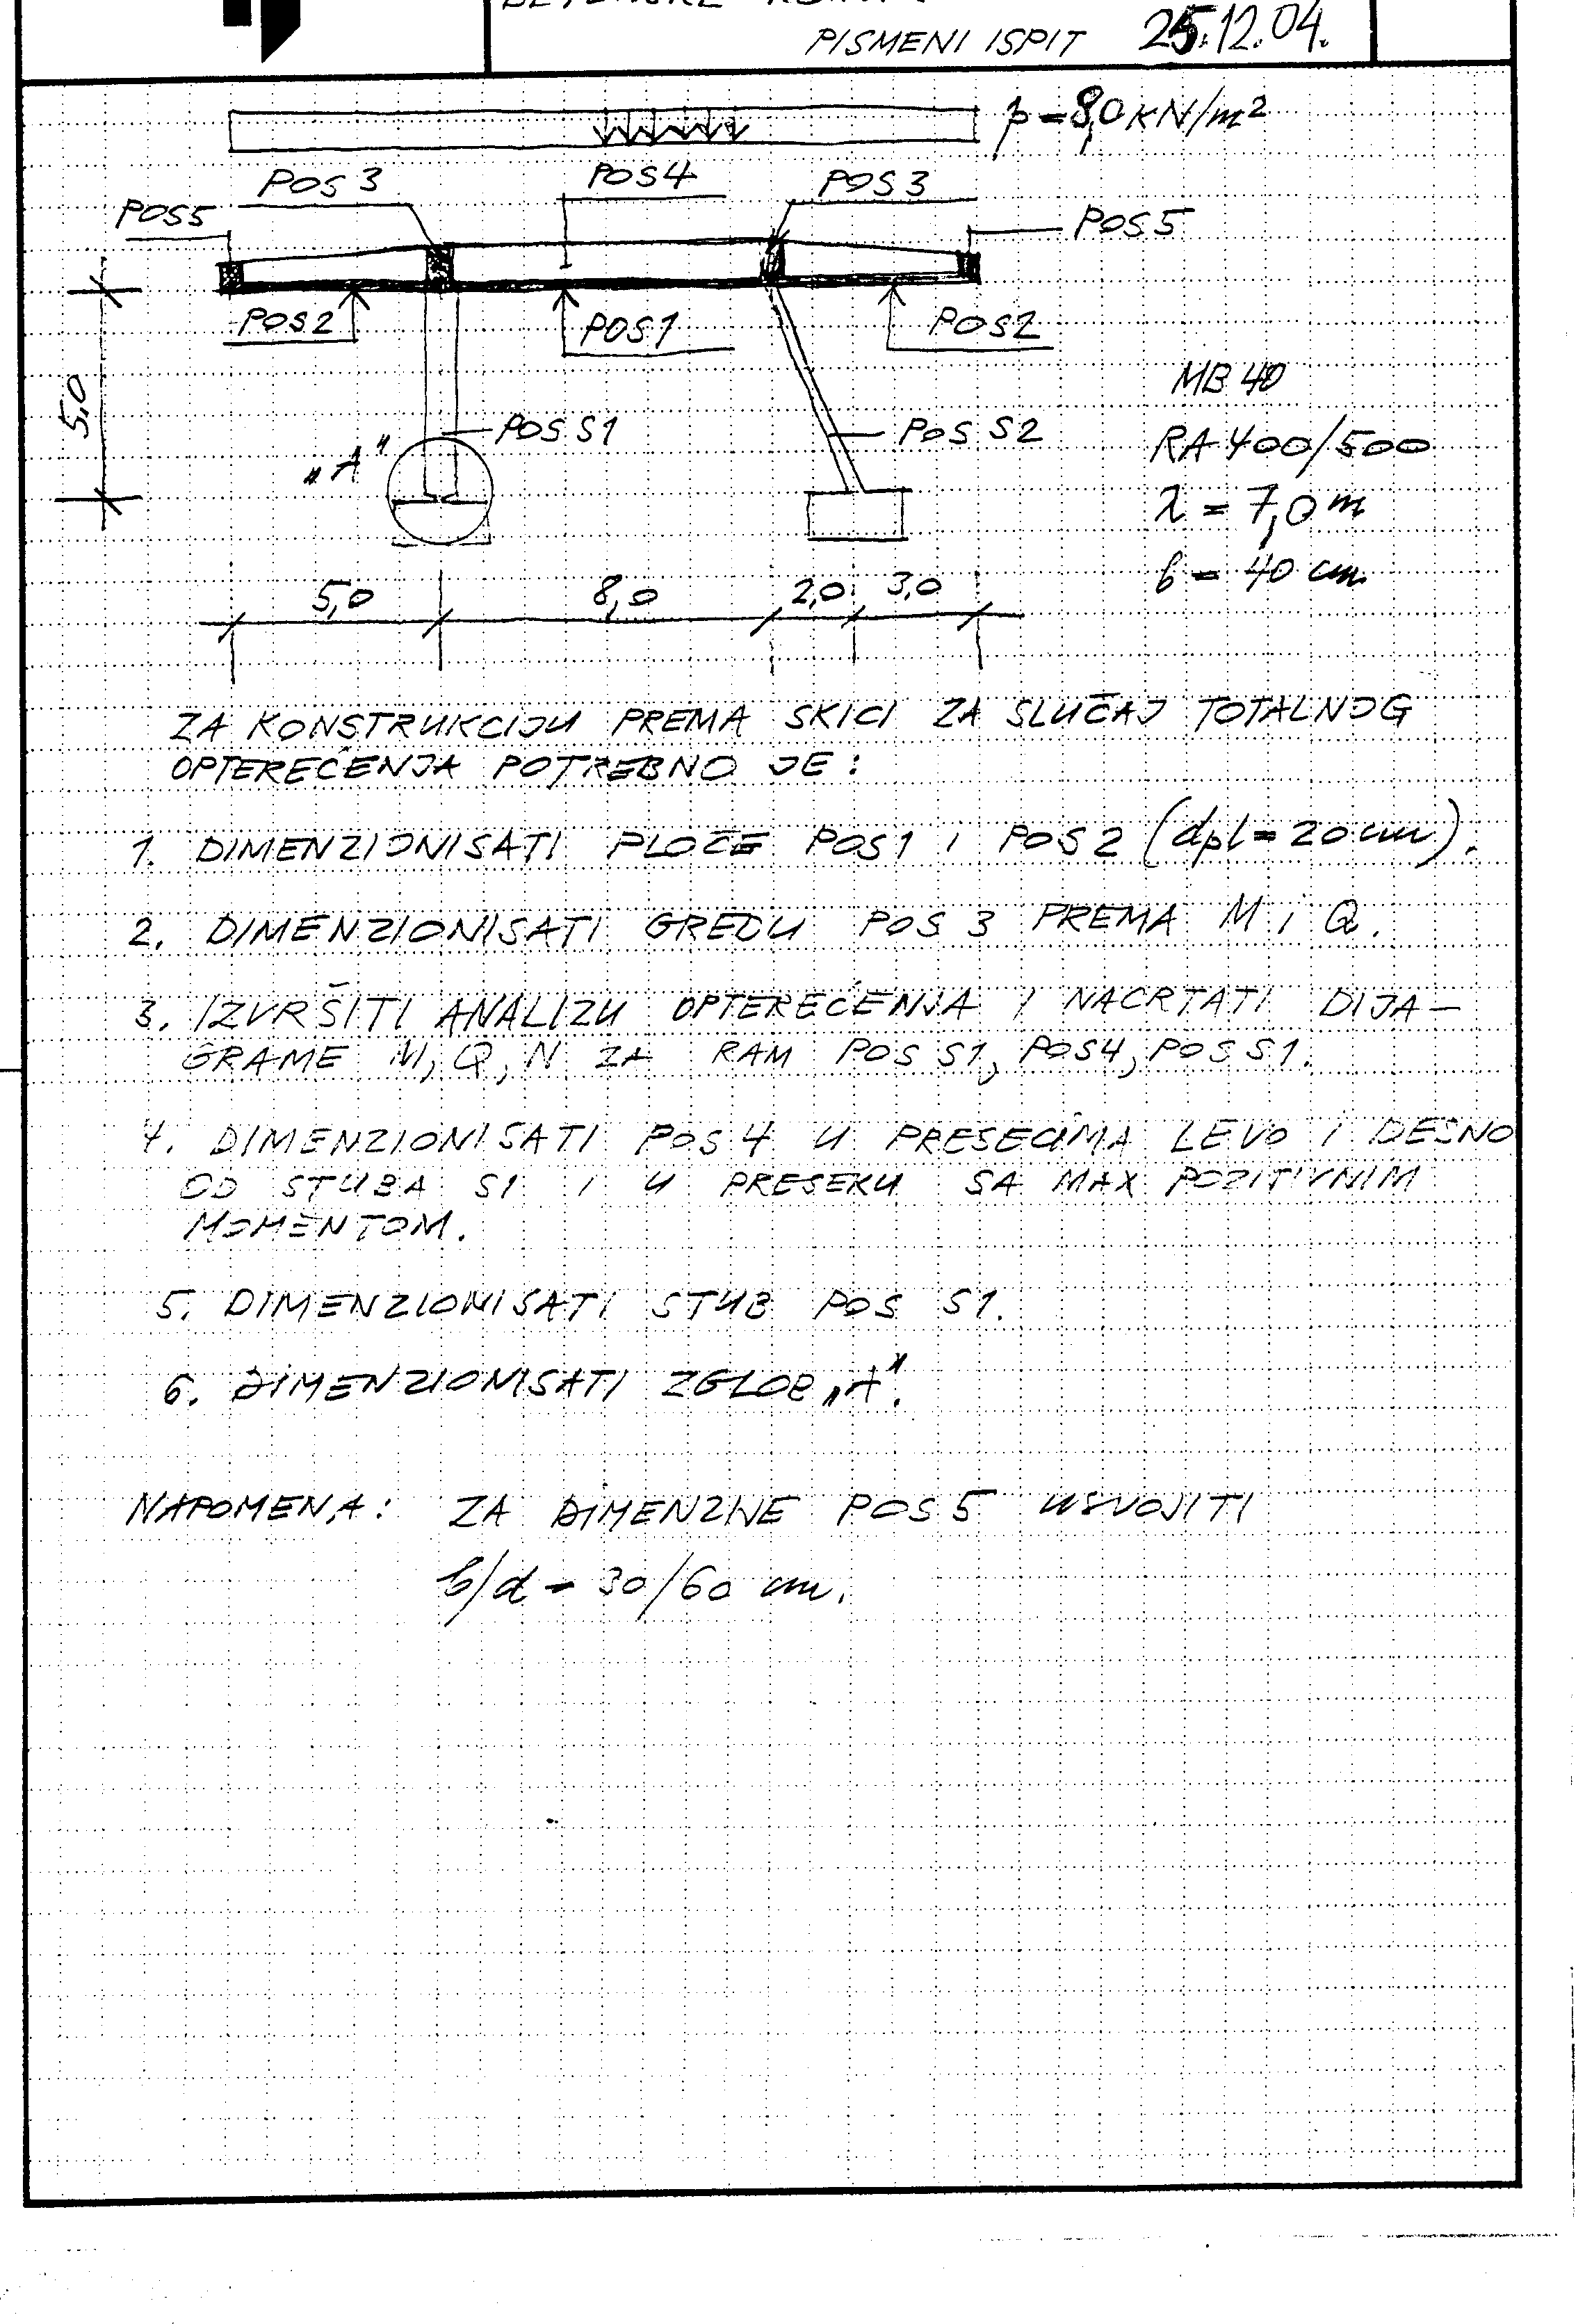 PISMENI ISPIT 25.12.04.
p = 8,0 KN/m²
POS 3 POS4 POS3
POS5 POS5
POS2 POS1 POS2
MB 40
5,0 "A" POS S1 POS S2 RA 400/500
λ = 7,0 m
b = 40 cm
5,0 8,0 2,0 3,0
ZA KONSTRUKCIJU PREMA SKICI ZA SLUČAJ TOTALNOG
OPTEREĆENJA POTREBNO JE:
1. DIMENZIONISATI PLOČE POS1 I POS2 (dpl = 20 cm).
2. DIMENZIONISATI GREDU POS 3 PREMA M i Q.
3. IZVRŠITI ANALIZU OPTEREĆENJA I NACRTATI DIJA-
GRAME M, Q, N ZA RAM POS S1, POS4, POS S1.
4. DIMENZIONISATI POS 4 U PRESECIMA LEVO I DESNO
OD STUBA S1 I U PRESEKU SA MAX POZITIVNIM
MOMENTOM.
5. DIMENZIONISATI STUB POS S1.
6. DIMENZIONISATI ZGLOB „A".
NAPOMENA: ZA DIMENZIJE POS5 USVOJITI
b/d = 30/60 cm.